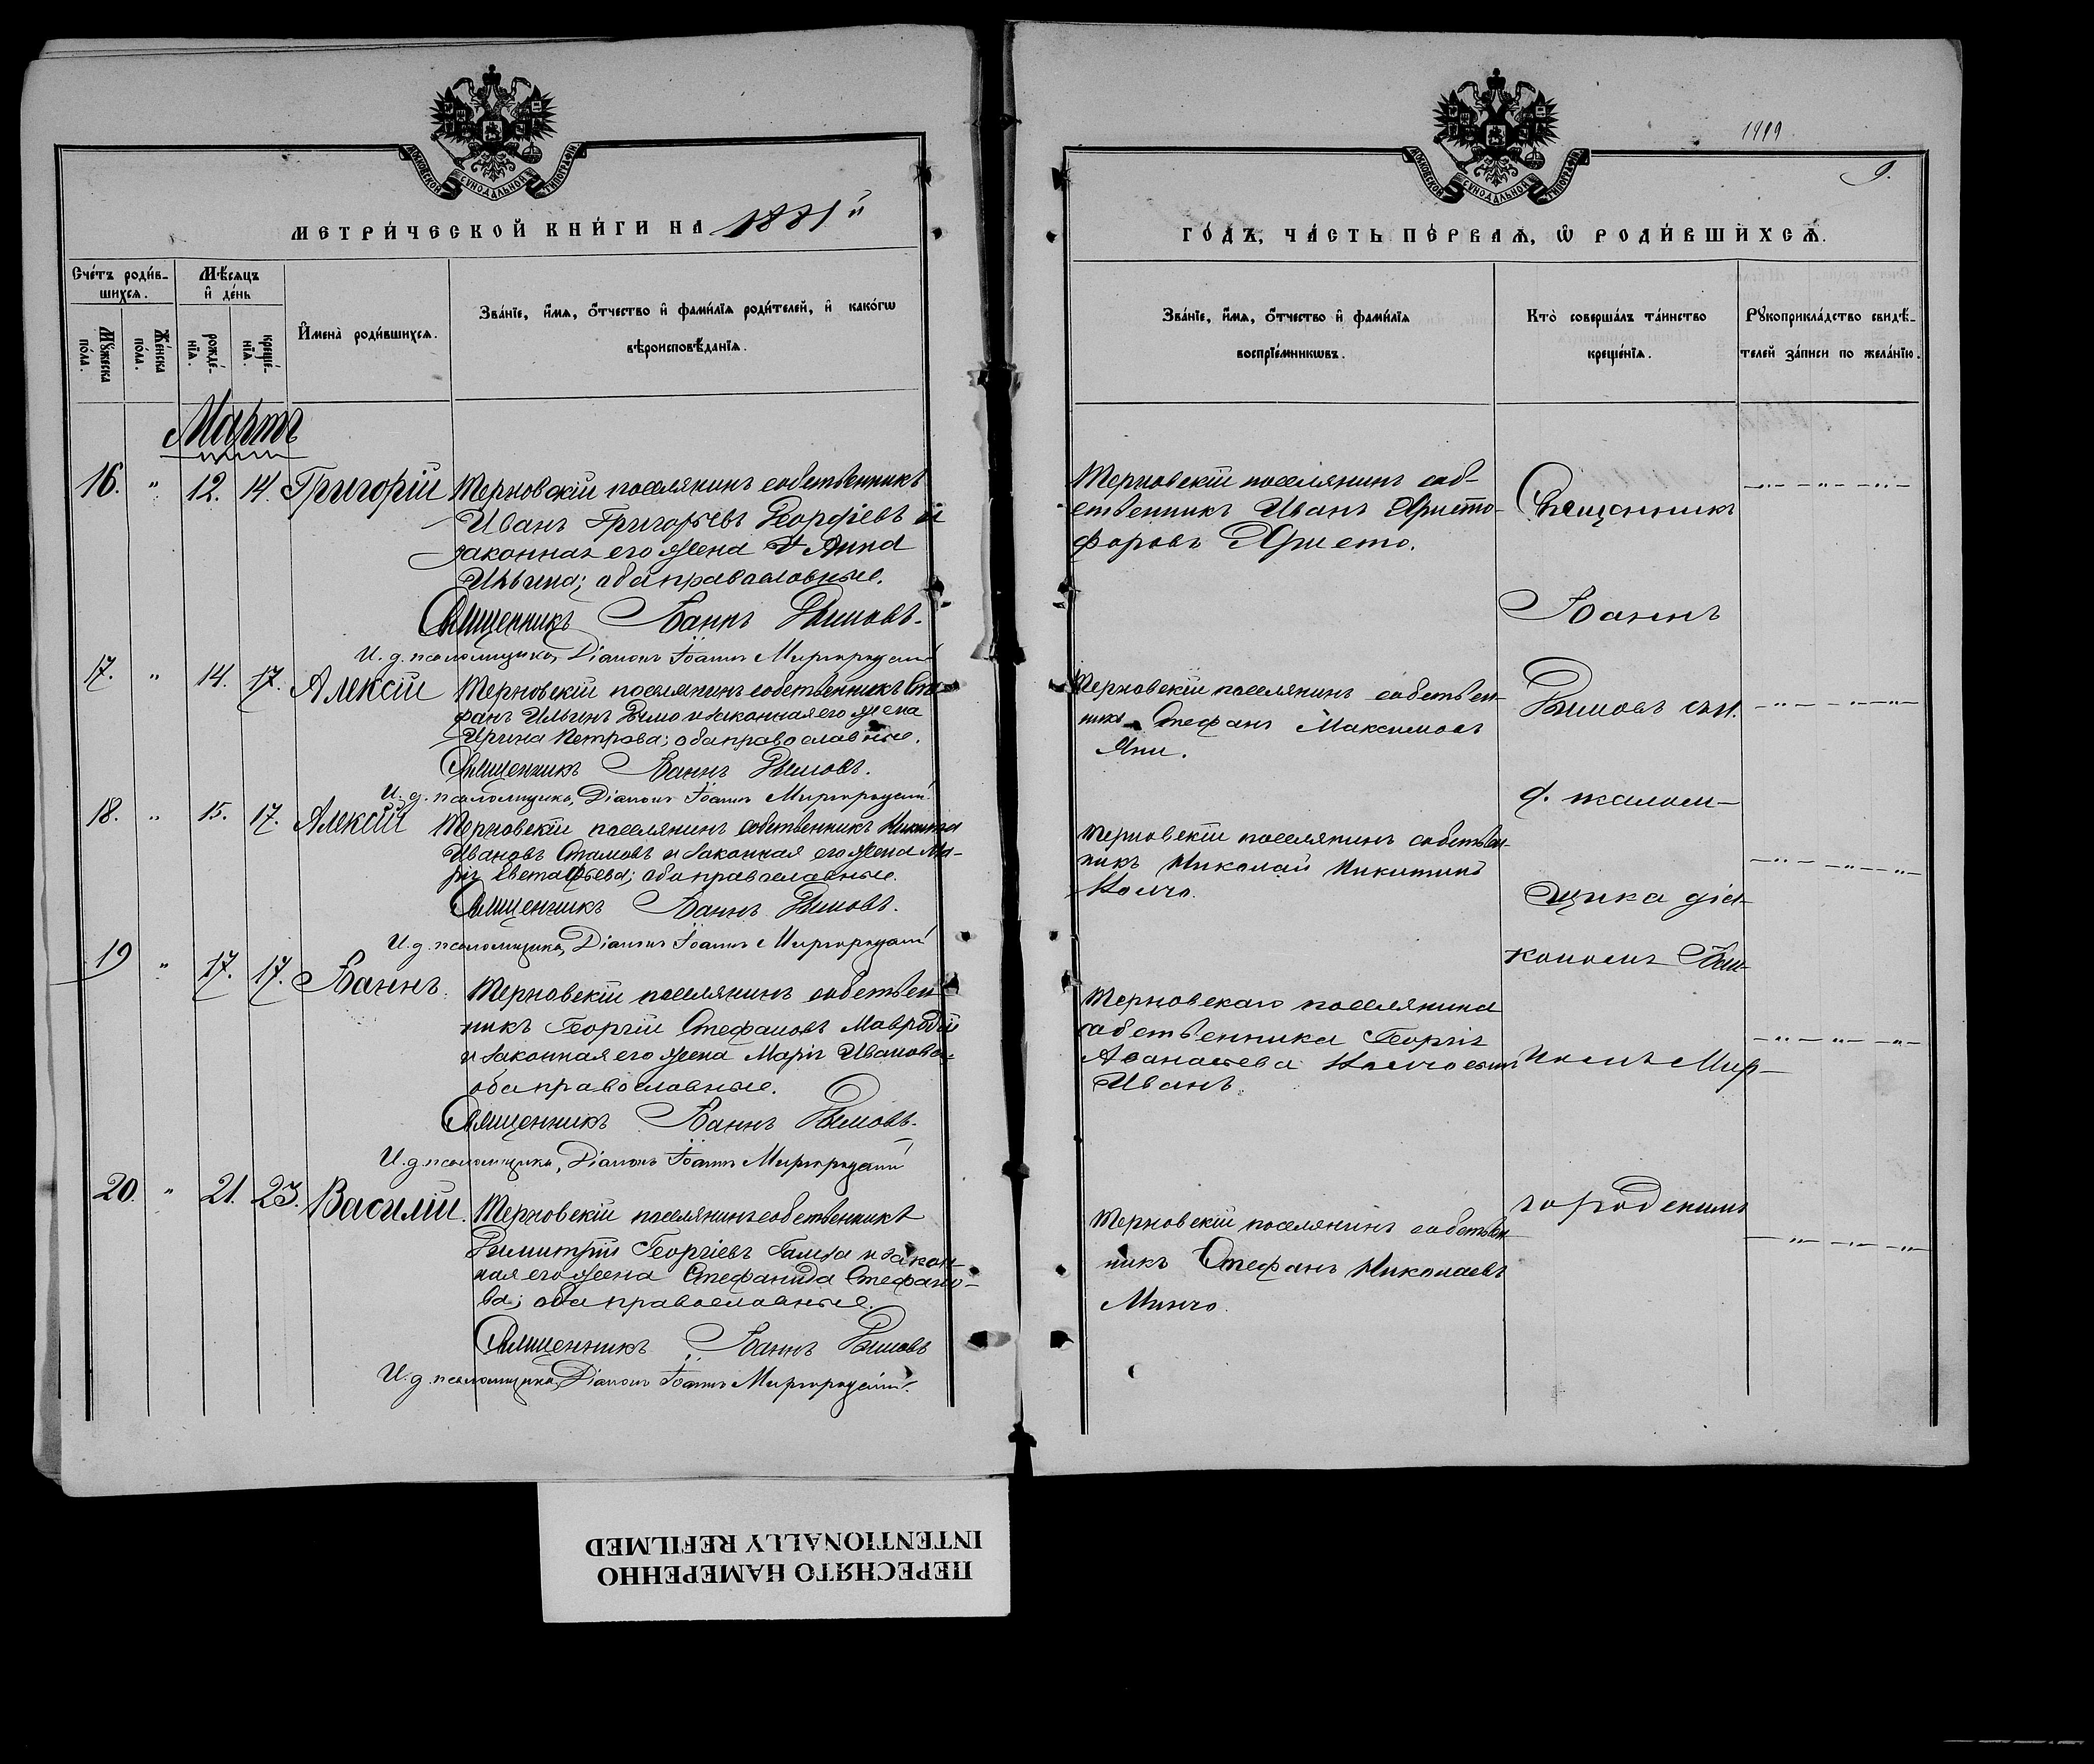 МОСКОВСКОЙ СУНОДАЛЬНОЙ ТИПОГРАФІИ
МЕТРИ́ЧЕСКОЙ КНИ́ГИ НА 1881й
Сче́тъ роди́в-
шихся.
Мѣ́сяцъ
и҆ де́нь
Мꙋ́жеска
по́ла.
Же́нска
по́ла.
рожде́-
нїѧ.
креще́-
нїѧ.
И҆мена̀ роди́вшихся.
Зва́нїе, и҆́мѧ, ѻ҆́тчество и҆ фами́лїѧ роди́телей, и҆ како́гѡ
вѣроисповѣ́данїѧ.
Мартъ
16. " 12. 14. Григорій Терновскій поселянинъ собственникъ
Иванъ Григорьевъ Георгіевъ и
законная его жена Анна
Ильина; оба православные.
Священникъ Іоаннъ Димовъ.
И. д. псаломщика, Діаконъ Іоаннъ Миргородскій
17. " 14. 17. Алексій Терновскій поселянинъ собственникъ Сте-
фанъ Ильинъ Димо и законная его жена
Ирина Петрова; оба православные.
Священникъ Іоаннъ Димовъ.
И. д. псаломщика, Діаконъ Іоаннъ Миргородскій
18. " 15. 17. Алексій Терновскій поселянинъ собственникъ Никита
Ивановъ Стамовъ и законная его жена Ма-
рія Евстафьева; оба православные.
Священникъ Іоаннъ Димовъ.
И. д. псаломщика, Діаконъ Іоаннъ Миргородскій
19 " 17. 17. Іоаннъ. Терновскій поселянинъ собствен-
никъ Георгій Стефановъ Мавродій
и законная его жена Марія Иванова;
оба православные.
Священникъ Іоаннъ Димовъ.
И. д. псаломщика, Діаконъ Іоаннъ Миргородскій
20. " 21. 23. Василій. Терновскій поселянинъ собственникъ
Димитрій Георгіевъ и закон-
ная его жена Стефанида Стефано-
ва; оба православные.
Священникъ Іоаннъ Димовъ
И. д. псаломщика, Діаконъ Іоаннъ Миргородскій.
МОСКОВСКОЙ СУНОДАЛЬНОЙ ТИПОГРАФІИ
9.
ГО́ДЪ, ЧА́СТЬ ПЕ́РВАѦ, Ѡ҆ РОДИ́ВШИХСѦ.
Зва́нїе, и҆́мѧ, ѻ҆́тчество и҆ фами́лїѧ
воспрїе́мникѡвъ.
Кто̀ соверша́лъ та́инство
креще́нїѧ.
Рꙋкоприкла́дство свидѣ́-
телей за́писи по жела́нїю.
Терновскій поселянинъ соб-
ственникъ Иванъ Христо-
форовъ Христо.
Терновскій поселянинъ собствен-
никъ Стефанъ Максимовъ
Яни.
Терновскій поселянинъ собствен-
никъ Николай Никитинъ
Колчо.
Терновскаго поселянина
собственника Георгія
Аѳанасьева Колчо сынъ
Иванъ.
Терновскій поселянинъ собствен-
никъ Стефанъ Николаевъ
Минчо.
Священникъ
Іоаннъ
Димовъ съ и.
д. псалом-
щика діа-
кономъ Іоан-
номъ Мир-
городскимъ
ПЕРЕСНЯТО НАМЕРЕННО
INTENTIONALLY REFILMED